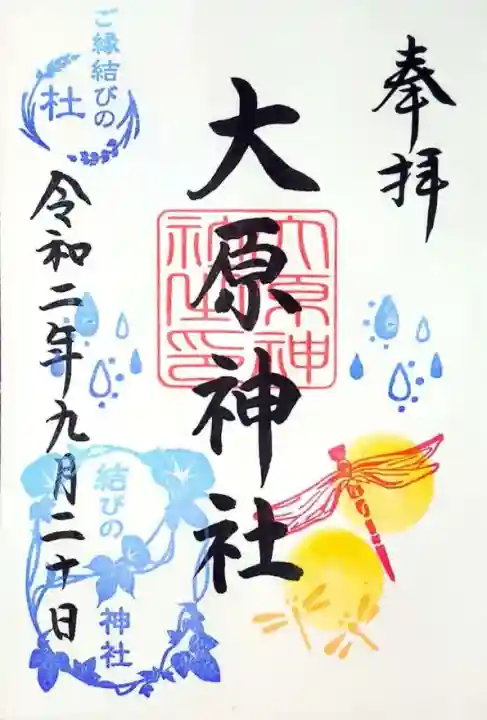 奉拝
大原神社
大原神社印
令和二年九月二十日
ご縁結びの
杜
結びの
神社